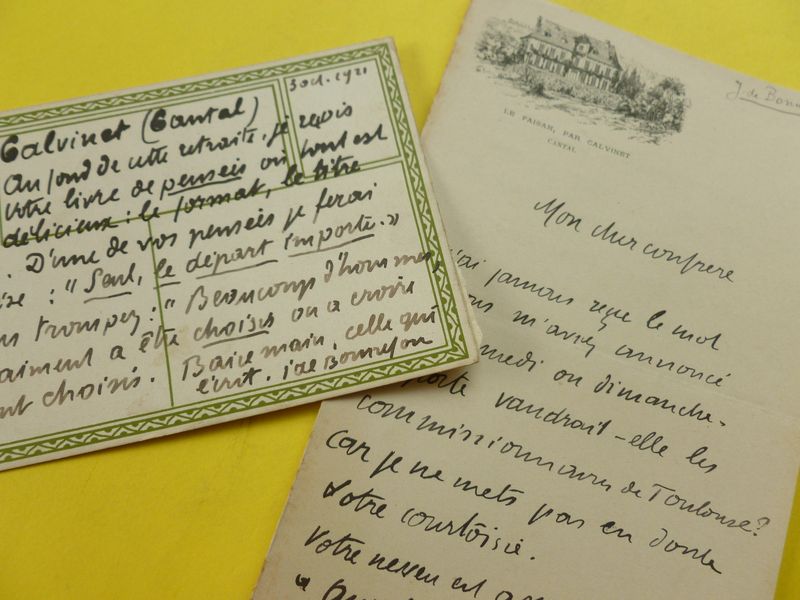 3 oct. 1921
Calvinet (Cantal)
Au fond de cette retraite, je reçois
votre livre de pensées où tout est
délicieux : le format, le titre
. D'une de vos pensées je ferai
: "Seul, le départ importe."
trompez : "Beaucoup d'hommes,
aiment a être choisis ou a croire
choisis. Baise main, celle qui
l'écrit. J. de Bonnefon
J. de Bonn
LE FAISAN, PAR CALVINET
CANTAL
Mon cher confrère
j'ai jamais reçu le mot
m'aviez annoncé
medi ou dimanche.
porte vaudrait-elle les
commissionnaires de Toulouse?
Car je ne mets pas en doute
votre courtoisie.
Votre neveu est